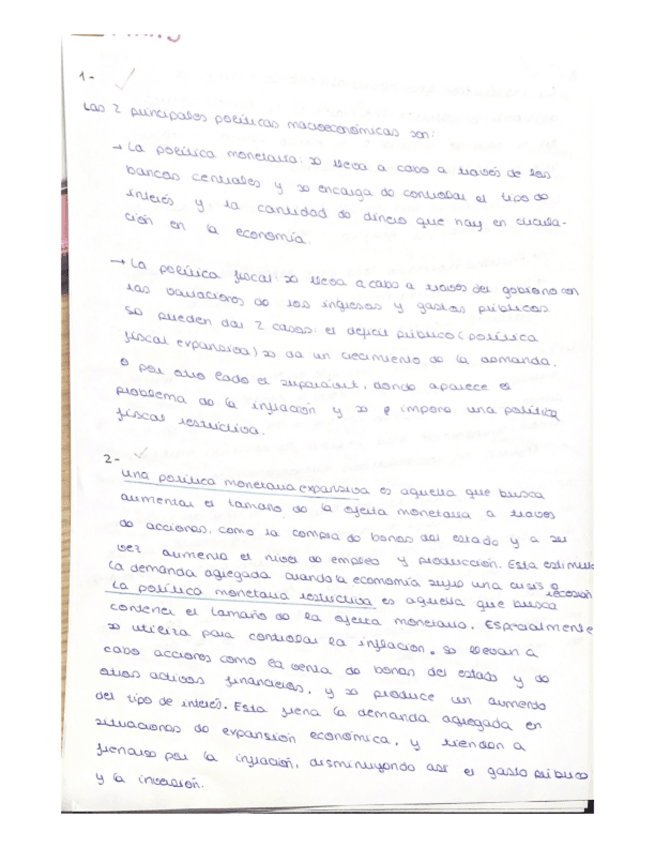 1-
Las 2 principales políticas macroeconómicas son:
→ La política monetaria: se lleva a cabo a través de los
bancos centrales y se encarga de controlar el tipo de
interés y la cantidad de dinero que hay en circula-
ción en la economía.
→ La política fiscal: se lleva a cabo a traves del gobierno con
las variaciones de los ingresos y gastos públicos
se pueden dar 2 casos: el deficit público (política
fiscal expansiva) se da un crecimiento de la demanda.
o por otro lado el superávit, donde aparece el
problema de la inflación y se impone una política
fiscal restrictiva.
2-
Una política monetaria expansiva es aquella que busca
aumentar el tamaño de la oferta monetaria a traves
de acciones, como la compra de bonos del estado y a su
vez aumenta el nivel de empleo y producción. Esta estimula
la demanda agregada cuando la economía sufre una crisis o
recesión
La política monetaria restrictiva es aquella que busca
contener el tamaño de la oferta monetaria. Especialmente
se utiliza para controlar la inflacion. Se llevan a
cabo acciones como la venta de bonos del estado y de
otros activos financieros, y se produce un aumento
del tipo de interés. Esta frena la demanda agregada en
situaciones de expansión económica, y tienden a
frenarse por la inflación, disminuyendo así el gasto público
y la inversión.